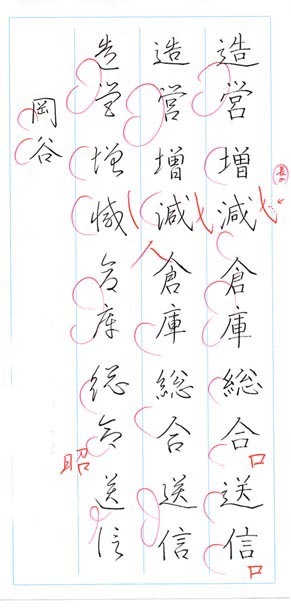 造営増減倉庫総合送信
造営増減倉庫総合送信
造営増減倉庫総合送信
岡谷
人
口
口
昭